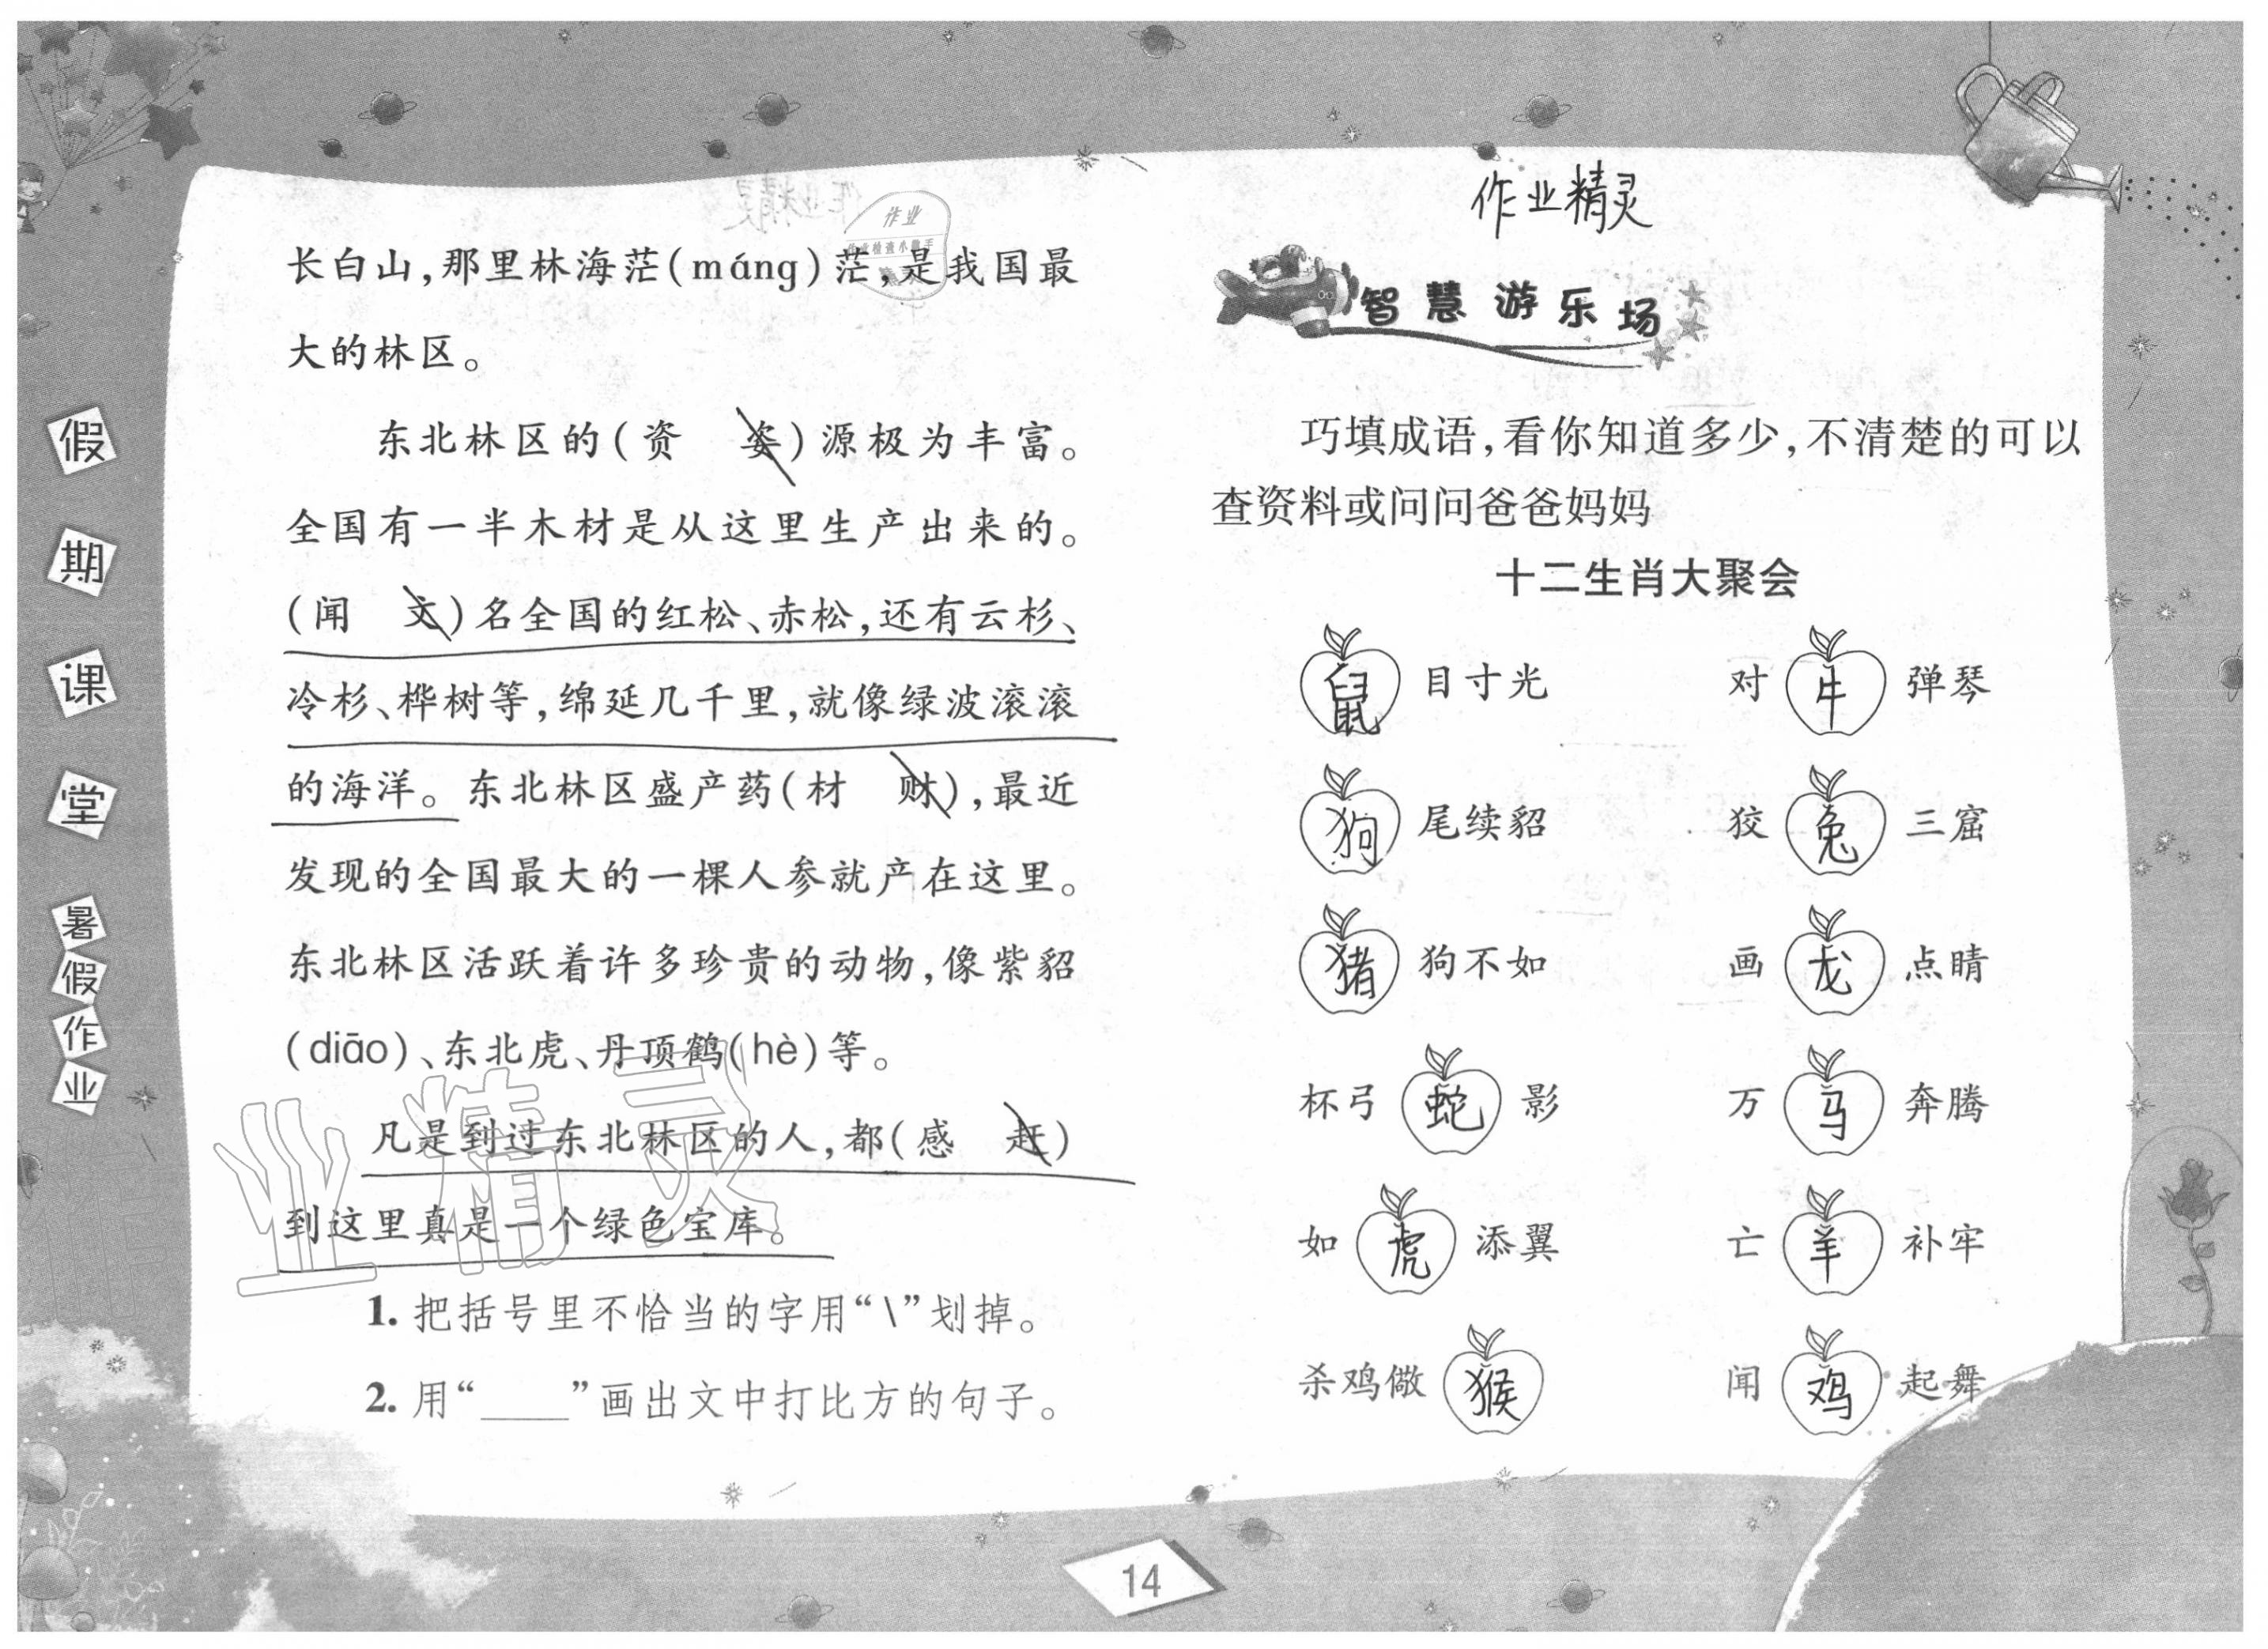 假期课堂
暑假作业
长白山,那里林海茫(máng)茫,是我国最
大的林区。
东北林区的(资 姿)源极为丰富。
全国有一半木材是从这里生产出来的。
(闻 文)名全国的红松、赤松,还有云杉、
冷杉、桦树等,绵延几千里,就像绿波滚滚
的海洋。东北林区盛产药(材 财),最近
发现的全国最大的一棵人参就产在这里。
东北林区活跃着许多珍贵的动物,像紫貂
(diāo)、东北虎、丹顶鹤(hè)等。
凡是到过东北林区的人,都(感 赶)
到这里真是一个绿色宝库。
1. 把括号里不恰当的字用“\”划掉。
2. 用“____”画出文中打比方的句子。
作业
作业精灵
作业精灵
智慧游乐场
巧填成语,看你知道多少,不清楚的可以
查资料或问问爸爸妈妈
十二生肖大聚会
鼠目寸光 对牛弹琴
狗尾续貂 狡兔三窟
猪狗不如 画龙点睛
杯弓蛇影 万马奔腾
如虎添翼 亡羊补牢
杀鸡儆猴 闻鸡起舞
14